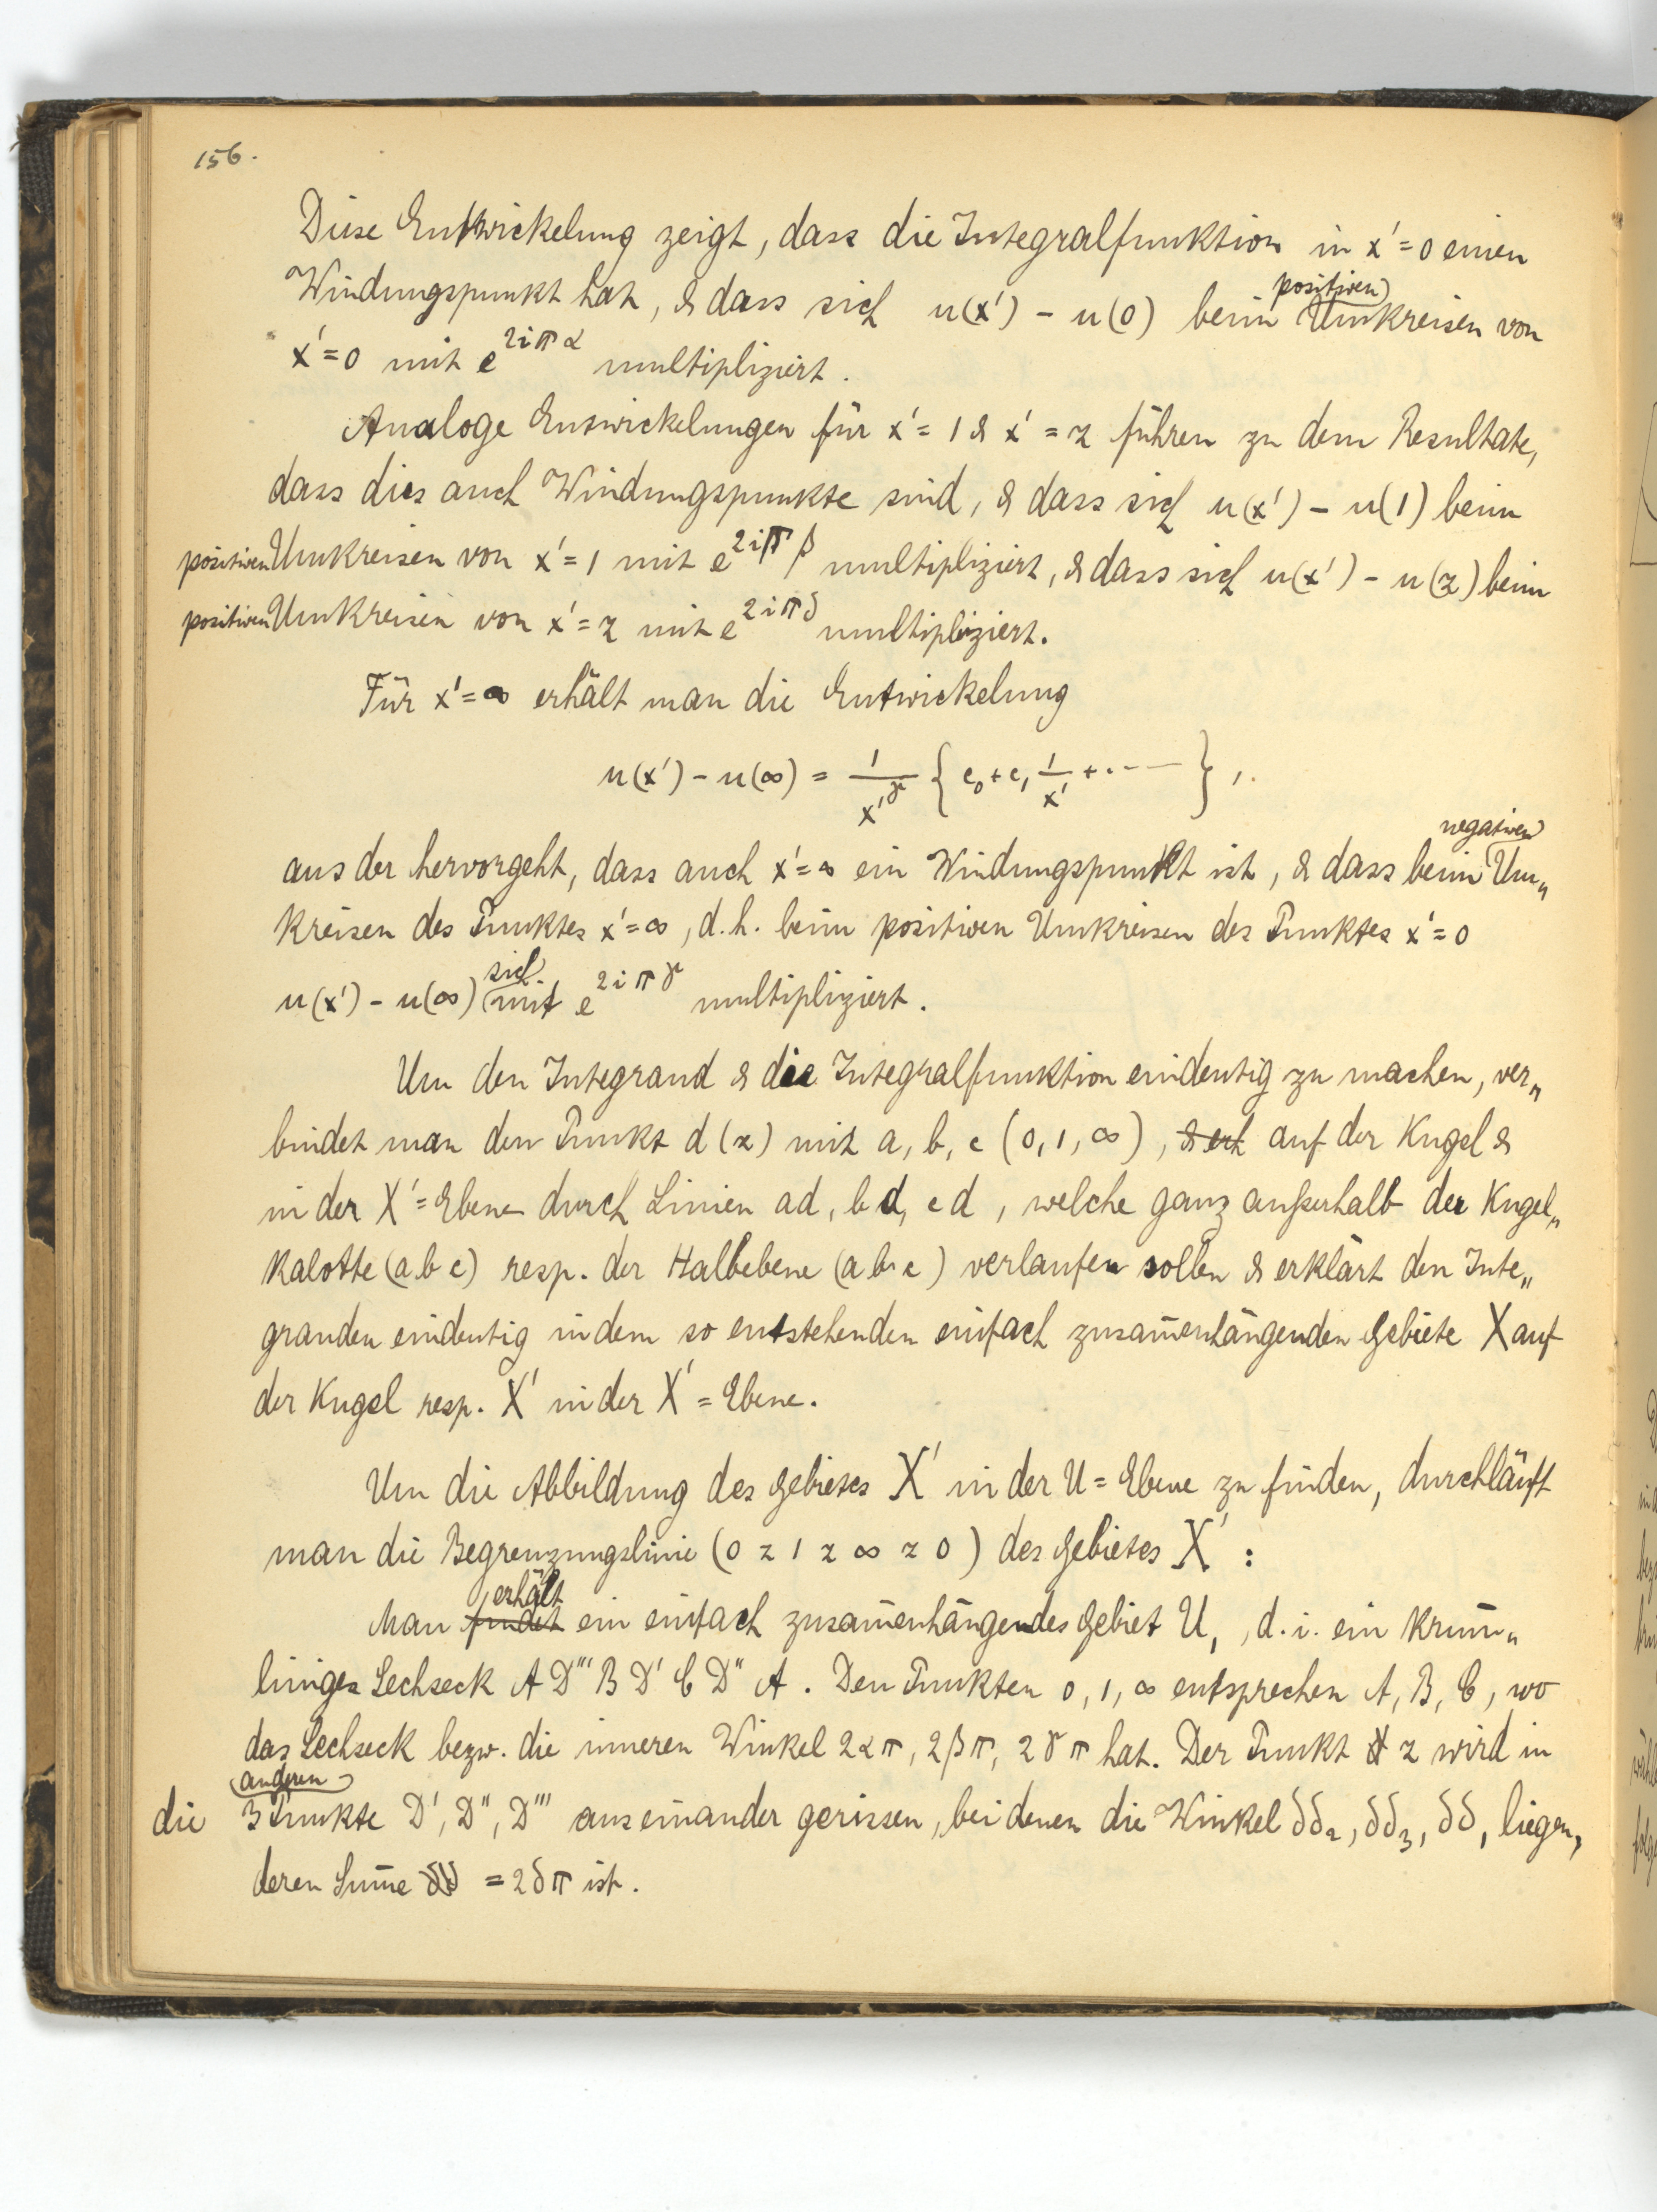 156.
Diese Entwickelung zeigt, dass die Integralfunktion in x' = 0 einen
Windungspunkt hat, & dass sich u(x') - u(0) beim positiven Umkreisen von
x' = 0 mit e^{2iπα} multipliziert.
Analoge Entwickelungen für x' = 1 & x' = z führen zu dem Resultate,
dass dies auch Windungspunkte sind, & dass sich u(x') - u(1) beim
positiven Umkreisen von x' = 1 mit e^{2iπβ} multipliziert, & dass sich u(x') - u(z) beim
positiven Umkreisen von x' = z mit e^{2iπδ} multipliziert.
Für x' = ∞ erhält man die Entwickelung
u(x') - u(∞) = 1/x'^γ { c₀ + c₁ 1/x' + ..... },
aus der hervorgeht, dass auch x' = ∞ ein Windungspunkt ist, & dass beim negativen Um„
kreisen des Punktes x' = ∞, d.h. beim positiven Umkreisen des Punktes x' = 0
u(x') - u(∞) sich mit e^{2iπγ} multipliziert.
Um den Integrand & die Integralfunktion eindeutig zu machen, ver„
bindet man den Punkt d (z) mit a, b, c (0, 1, ∞), auf der Kugel &
in der X' = Ebene durch Linien ad, bd, cd, welche ganz außerhalb der Kugel„
kalotte (a b c) resp. der Halbebene (a b c) verlaufen sollen & erklärt den Inte„
granden eindeutig in dem so entstehenden einfach zusam̄enhängenden Gebiete X auf
der Kugel resp. X' in der X' = Ebene.
Um die Abbildung des Gebietes X' in der U = Ebene zu finden, durchläuft
man die Begrenzungslinie (0 z 1 z ∞ z 0) des Gebietes X' :
Man findet erhält ein einfach zusam̄enhängendes Gebiet U, , d.i. ein krum̄„
liniges Sechseck A D''' B D' C D'' A. Den Punkten 0, 1, ∞ entsprechen A, B, C, wo
das Sechseck bezw. die inneren Winkel 2απ, 2βπ, 2γπ hat. Der Punkt z wird in
die anderen 3 Punkte D', D'', D''' auseinander gerissen, bei denen die Winkel δδ₂, δδ₃, δδ, liegen,
deren Sum̄e = 2δπ ist.